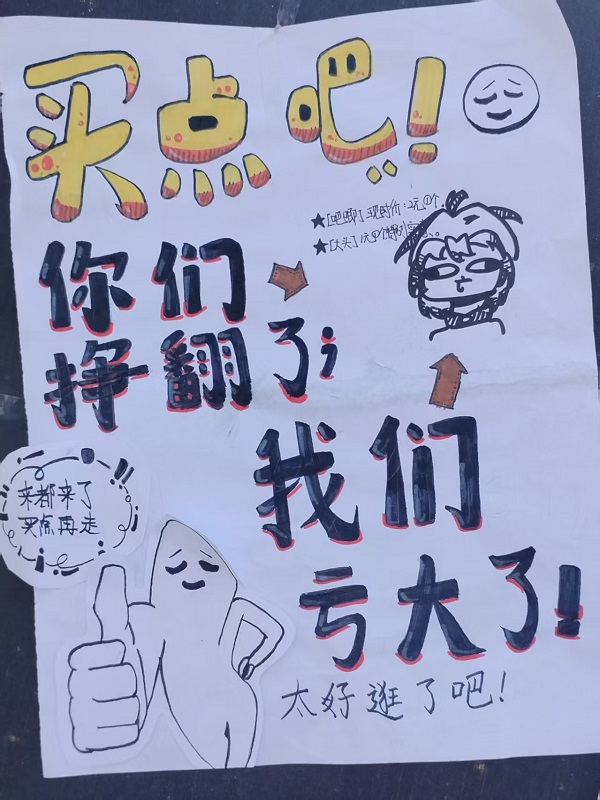 买点吧!
★[吧唧]现时价:2元1个。
★[大头]1元1个
你们
挣翻了;
我们
亏大了!
来都来了
买点再走
太好逛了吧!